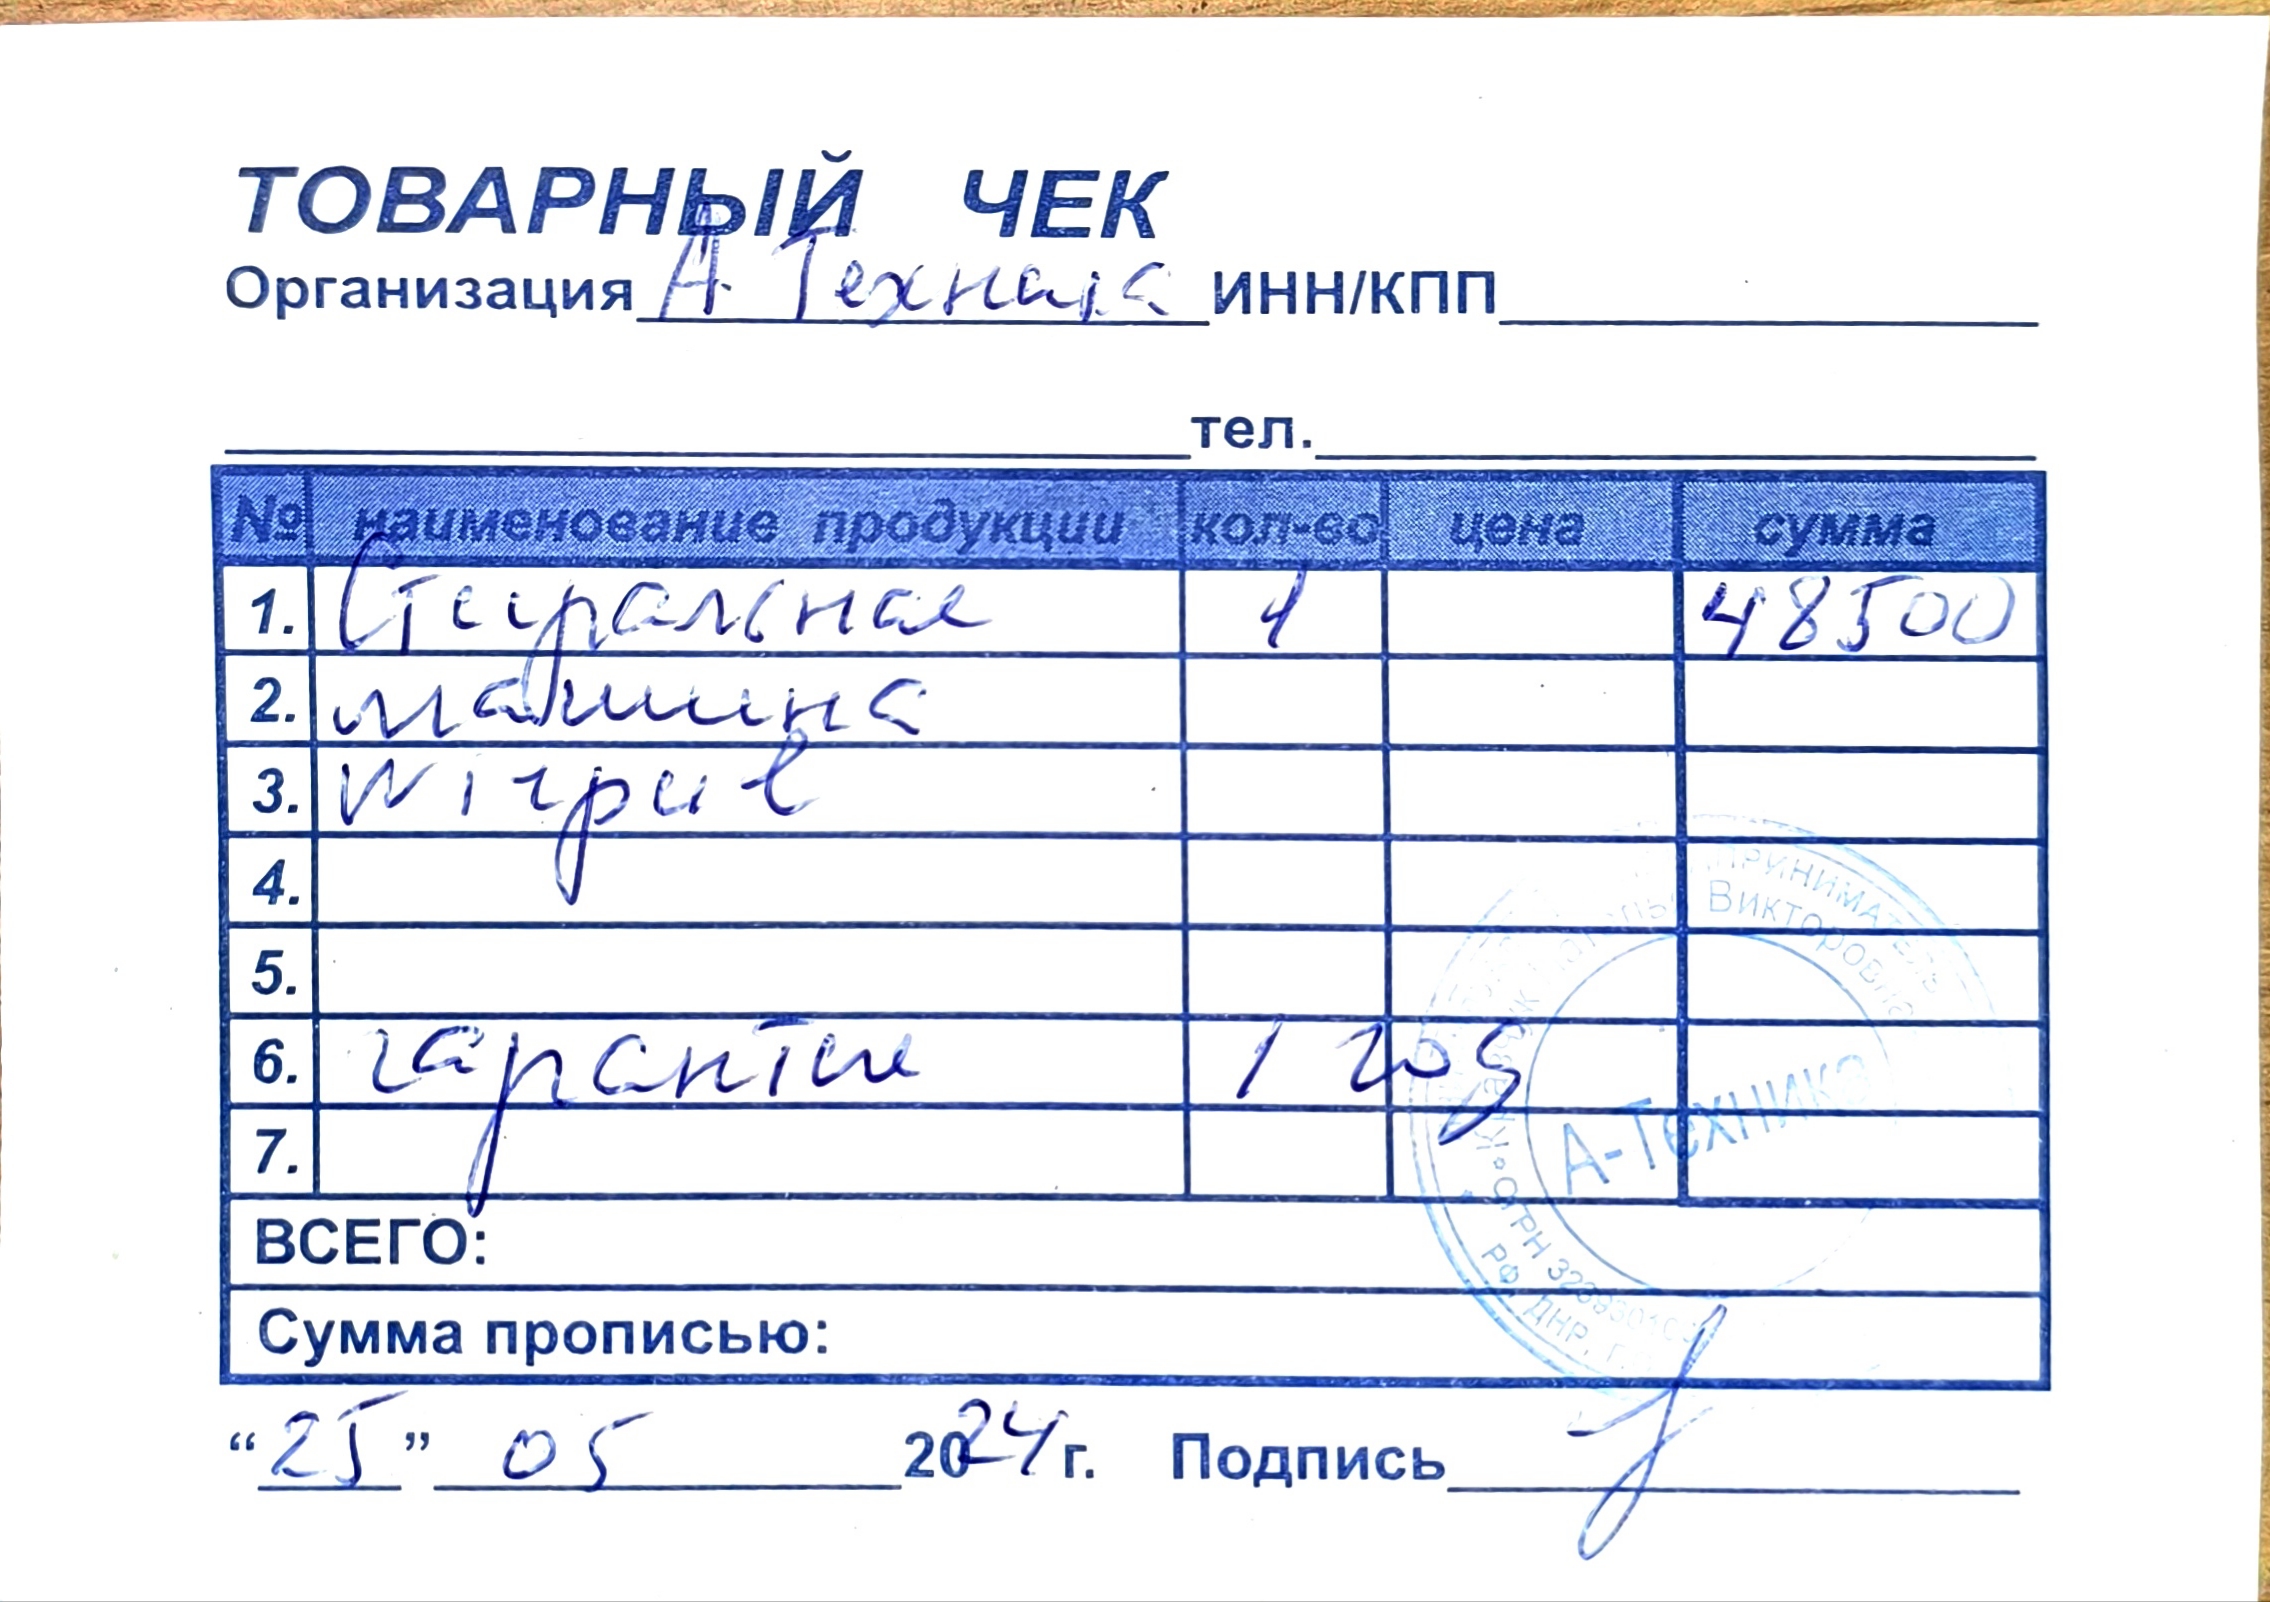 ТОВАРНЫЙ ЧЕК
Организация А Техника ИНН/КПП
тел.
№ наименование продукции кол-во цена сумма
1. Стиральная 1 48500
2. машина
3.
4.
5.
6. гарантия 1 год
7.
ВСЕГО:
Сумма прописью:
"25" 05 2024 г. Подпись
Викторович
А-Техника
РФ, ДНР, Г.